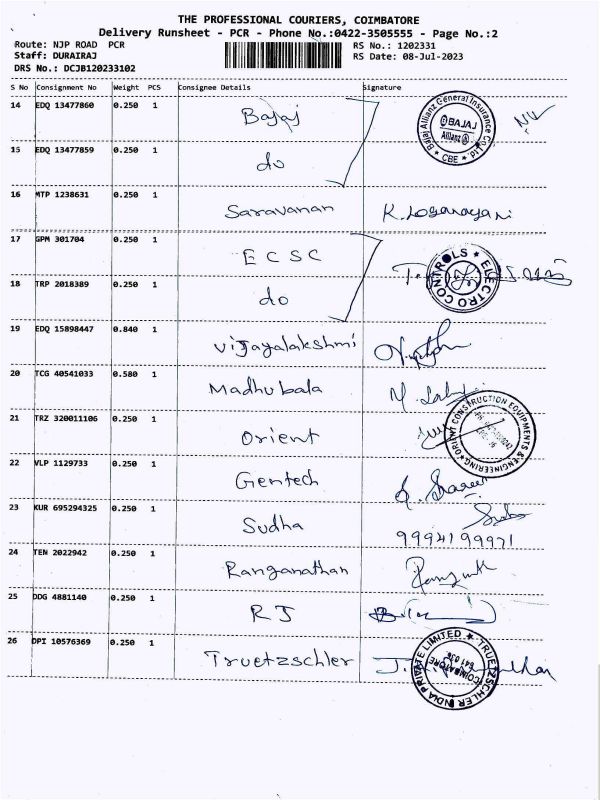 THE PROFESSIONAL COURIERS, COIMBATORE
Delivery Runsheet - PCR - Phone No.:0422-3505555 - Page No.:2
Route: NJP ROAD PCR
RS No.: 1202331
Staff: DURAIRAJ
RS Date: 08-Jul-2023
DRS No.: DCJB120233102
S No Consignment No Weight PCS Consignee Details Signature
14 EDQ 13477860 0.250 1 Bajaj
Bajaj Allianz General Insurance Co. CBE
BAJAJ
Allianz
15 EDQ 13477859 0.250 1 do
16 MTP 1238631 0.250 1 Saravanan K.
17 GPM 301704 0.250 1 ECSC
ELECTRO CONTROLS
18 TRP 2018389 0.250 1 do
19 EDQ 15898447 0.840 1 Vijayalakshmi
20 TCG 40541033 0.580 1 Madhubala
21 TRZ 320011106 0.250 1 Orient
ORIENT CONSTRUCTION EQUIPMENTS & ENGINEERING
22 VLP 1129733 0.250 1 Gentech
23 KUR 695294325 0.250 1 Sudha
9994199971
24 TEN 2022942 0.250 1 Ranganathan
25 DDG 4881140 0.250 1 RJ
26 DPI 10576369 0.250 1 Truetzschler
TRUETZSCHLER INDIA PRIVATE LIMITED
COIMBATORE